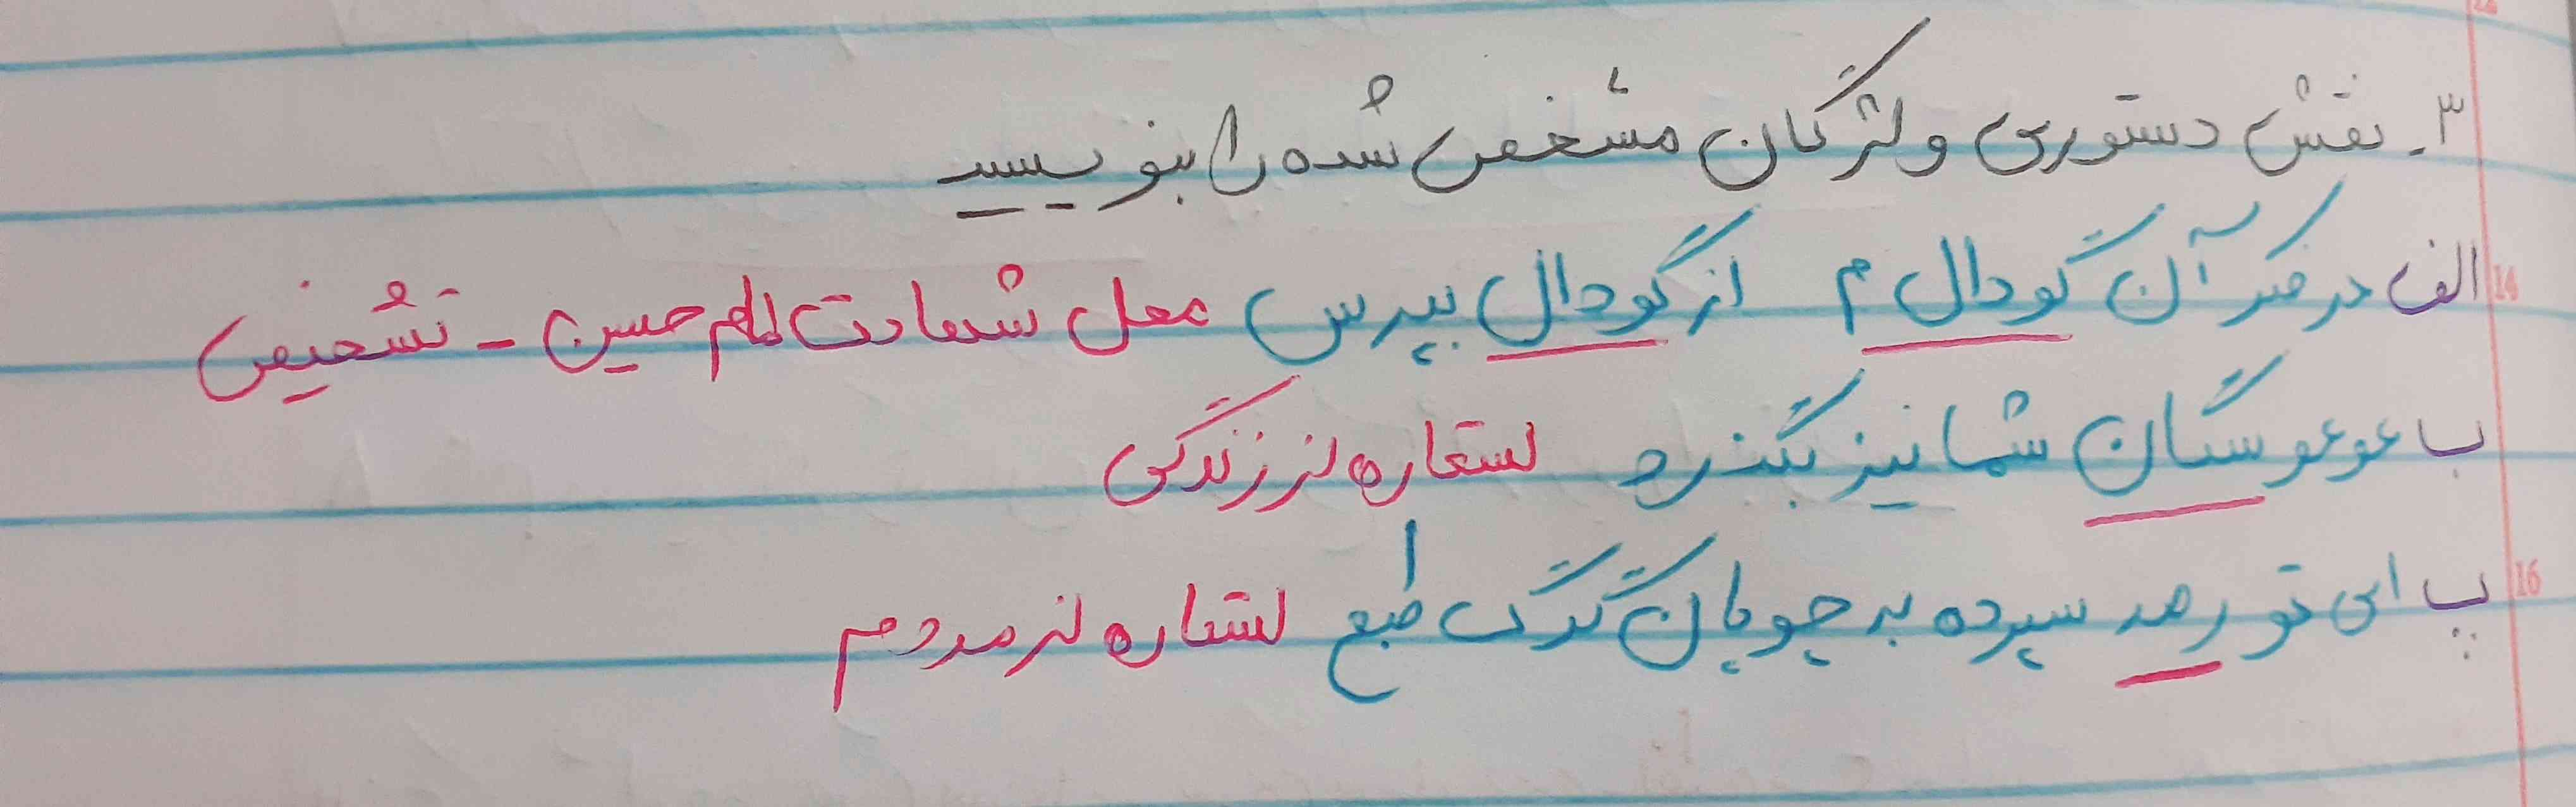 ۳- نقش دستوری واژگان مشخص شده را بنویسید
الف در فکر آن گودالم از گودال بپرس محل شهادت امام حسین - تشخیص
ب عوعو سگان شما نیز بگذرد استعاره از زندگی
پ ای تو رمه سپرده به چوپان گرگ طبع استعاره از مردم